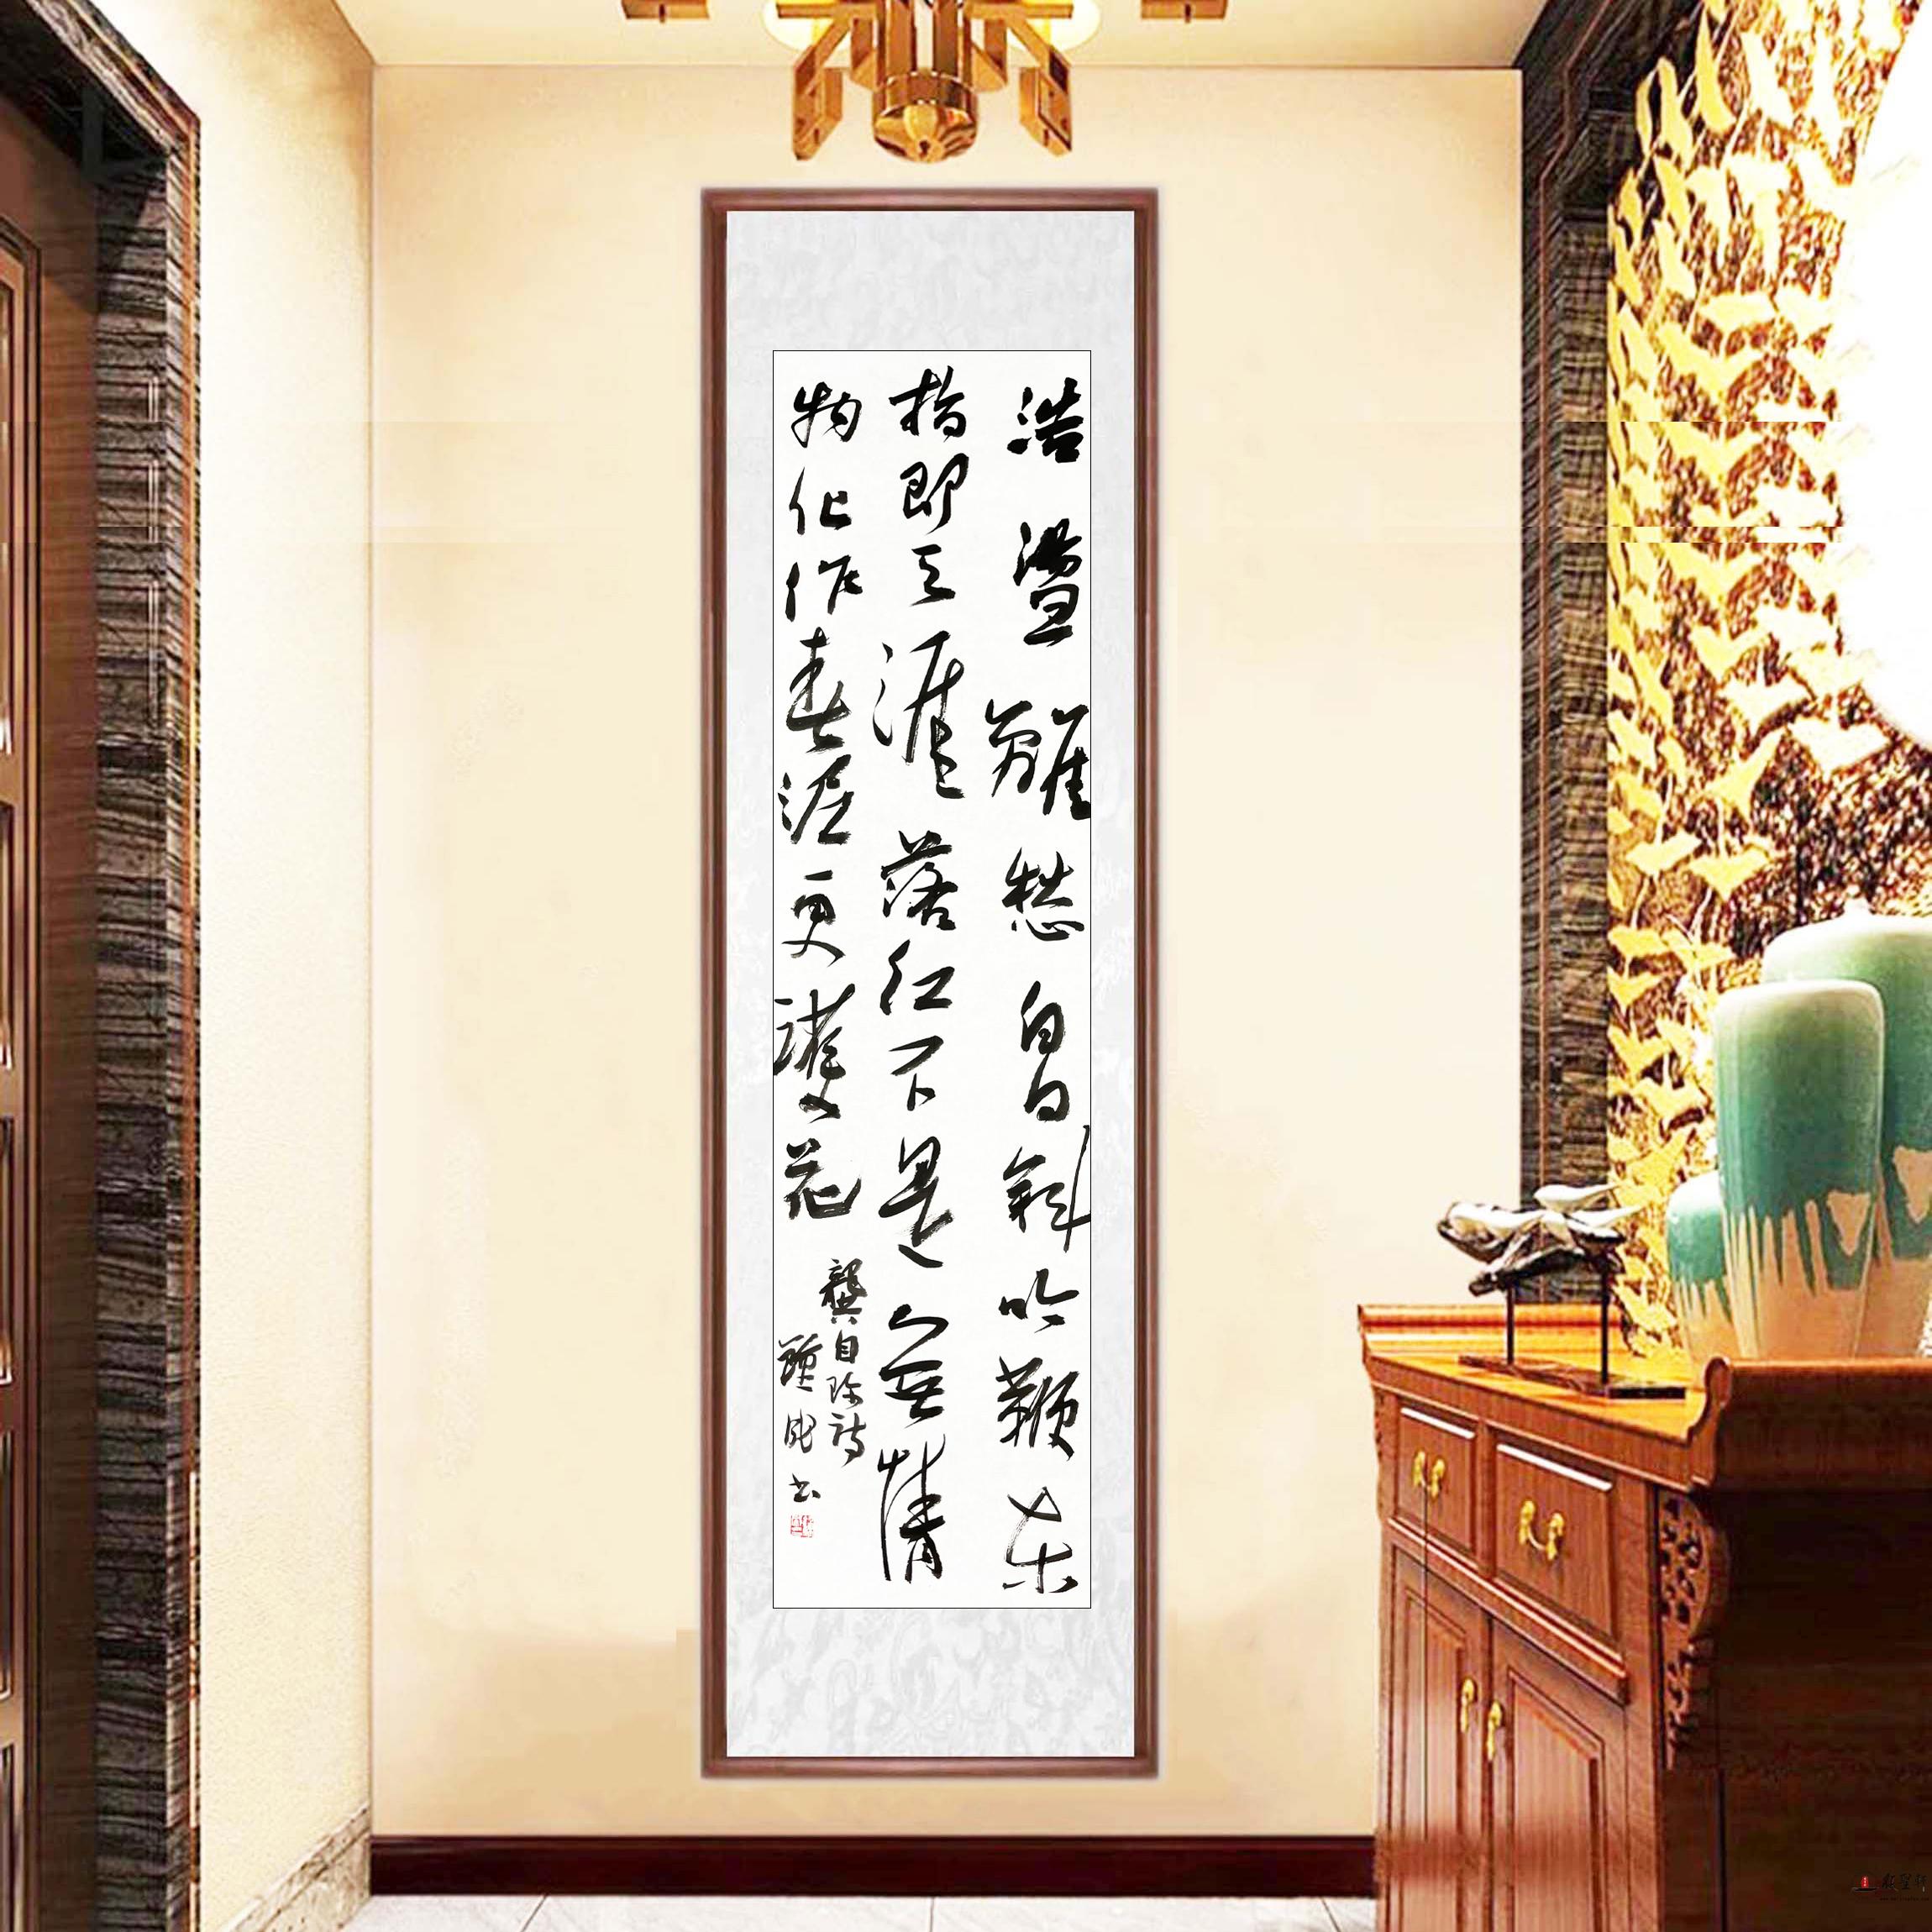 浩盪離愁白日斜吟鞭东
指即天涯落红不是無情
物化作春泥更護花
龔自珍詩
书